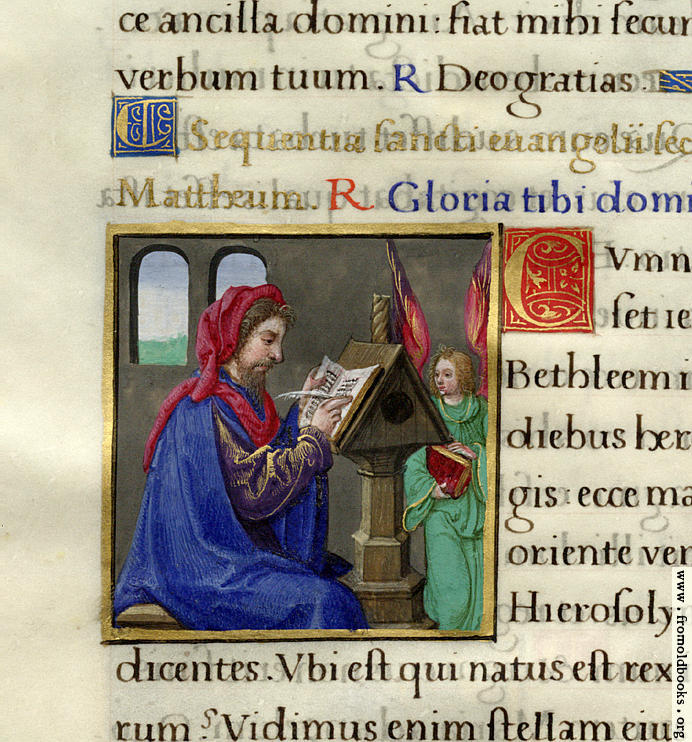 ce ancilla domini: fiat mihi secun
verbum tuum. R Deo gratias.
Sequentia sancti euangelii sec
Mattheum. R. Gloria tibi domi
CVmn
set ie
Bethleem i
diebus her
gis: ecce ma
oriente ven
Hierosoly
dicentes. Vbi est qui natus est rex
rum? Vidimus enim stellam eiu
www.fromoldbooks.org